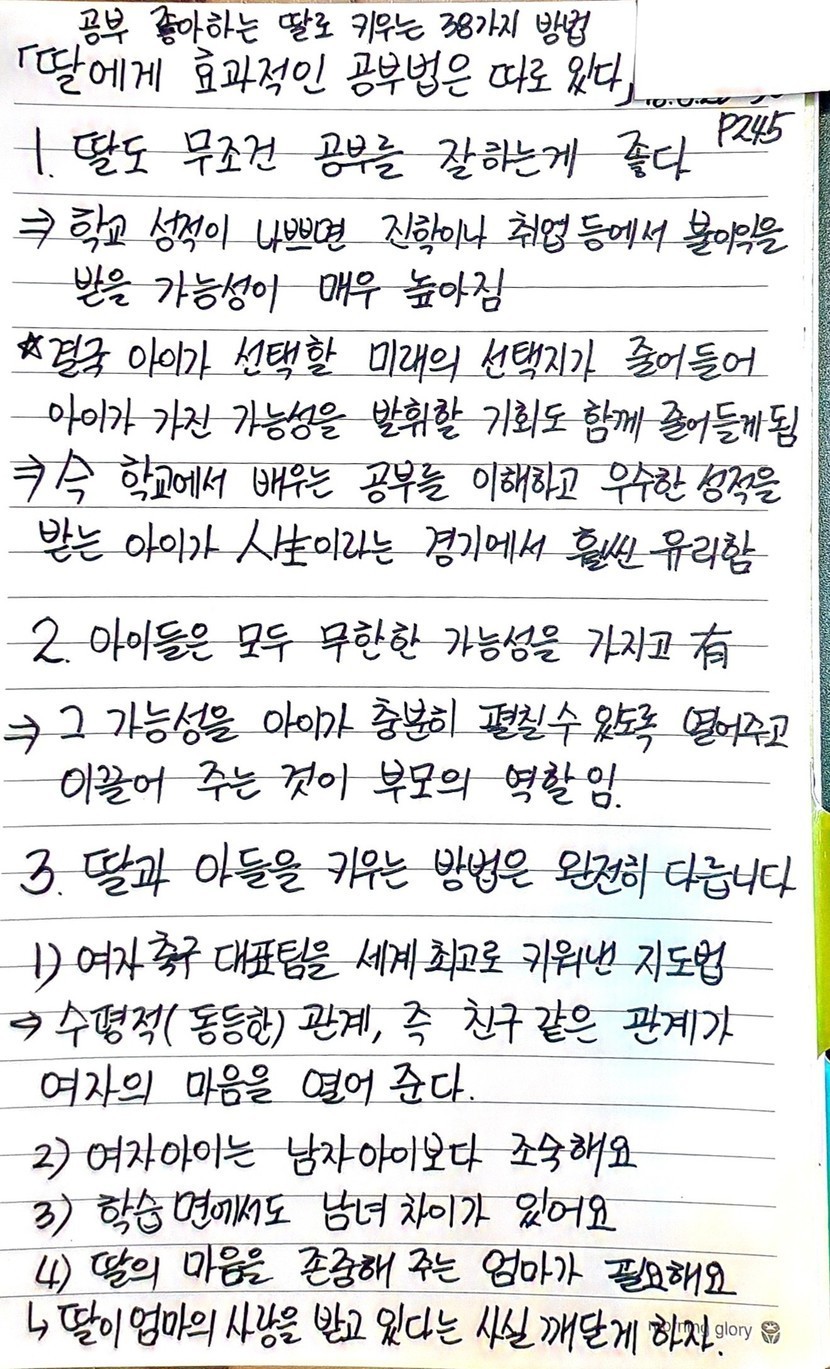 공부 좋아하는 딸로 키우는 38가지 방법
「딸에게 효과적인 공부법은 따로 있다」
P245
1. 딸도 무조건 공부를 잘하는게 좋다
⇒ 학교 성적이 나쁘면 진학이나 취업 등에서 불이익을
받을 가능성이 매우 높아짐
☆결국 아이가 선택할 미래의 선택지가 줄어들어
아이가 가진 가능성을 발휘할 기회도 함께 줄어들게 됨
⇒ 속 학교에서 배우는 공부를 이해하고 우수한 성적을
받는 아이가 人生이라는 경기에서 훨씬 유리함
2. 아이들은 모두 무한한 가능성을 가지고 有
⇒ 그 가능성을 아이가 충분히 펼칠수 있도록 열어주고
이끌어 주는 것이 부모의 역할임.
3. 딸과 아들을 키우는 방법은 완전히 다릅니다
1) 여자 축구 대표팀을 세계 최고로 키워낸 지도법
→ 수평적(동등한) 관계, 즉 친구 같은 관계가
여자의 마음을 열어 준다.
2) 여자아이는 남자아이보다 조숙해요
3) 학습 면에서도 남녀 차이가 있어요
4) 딸의 마음을 존중해 주는 엄마가 필요해요
↳ 딸이 엄마의 사랑을 받고 있다는 사실 깨닫게 하자.
morning glory